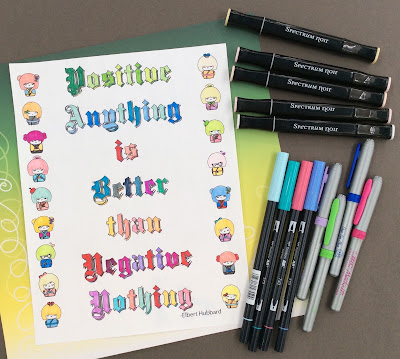 Positive
Anything
is
Better
than
Negative
Nothing
Elbert Hubbard
Spectrum noir
Spectrum noir
Spectrum noir
Spectrum noir
Spectrum noir